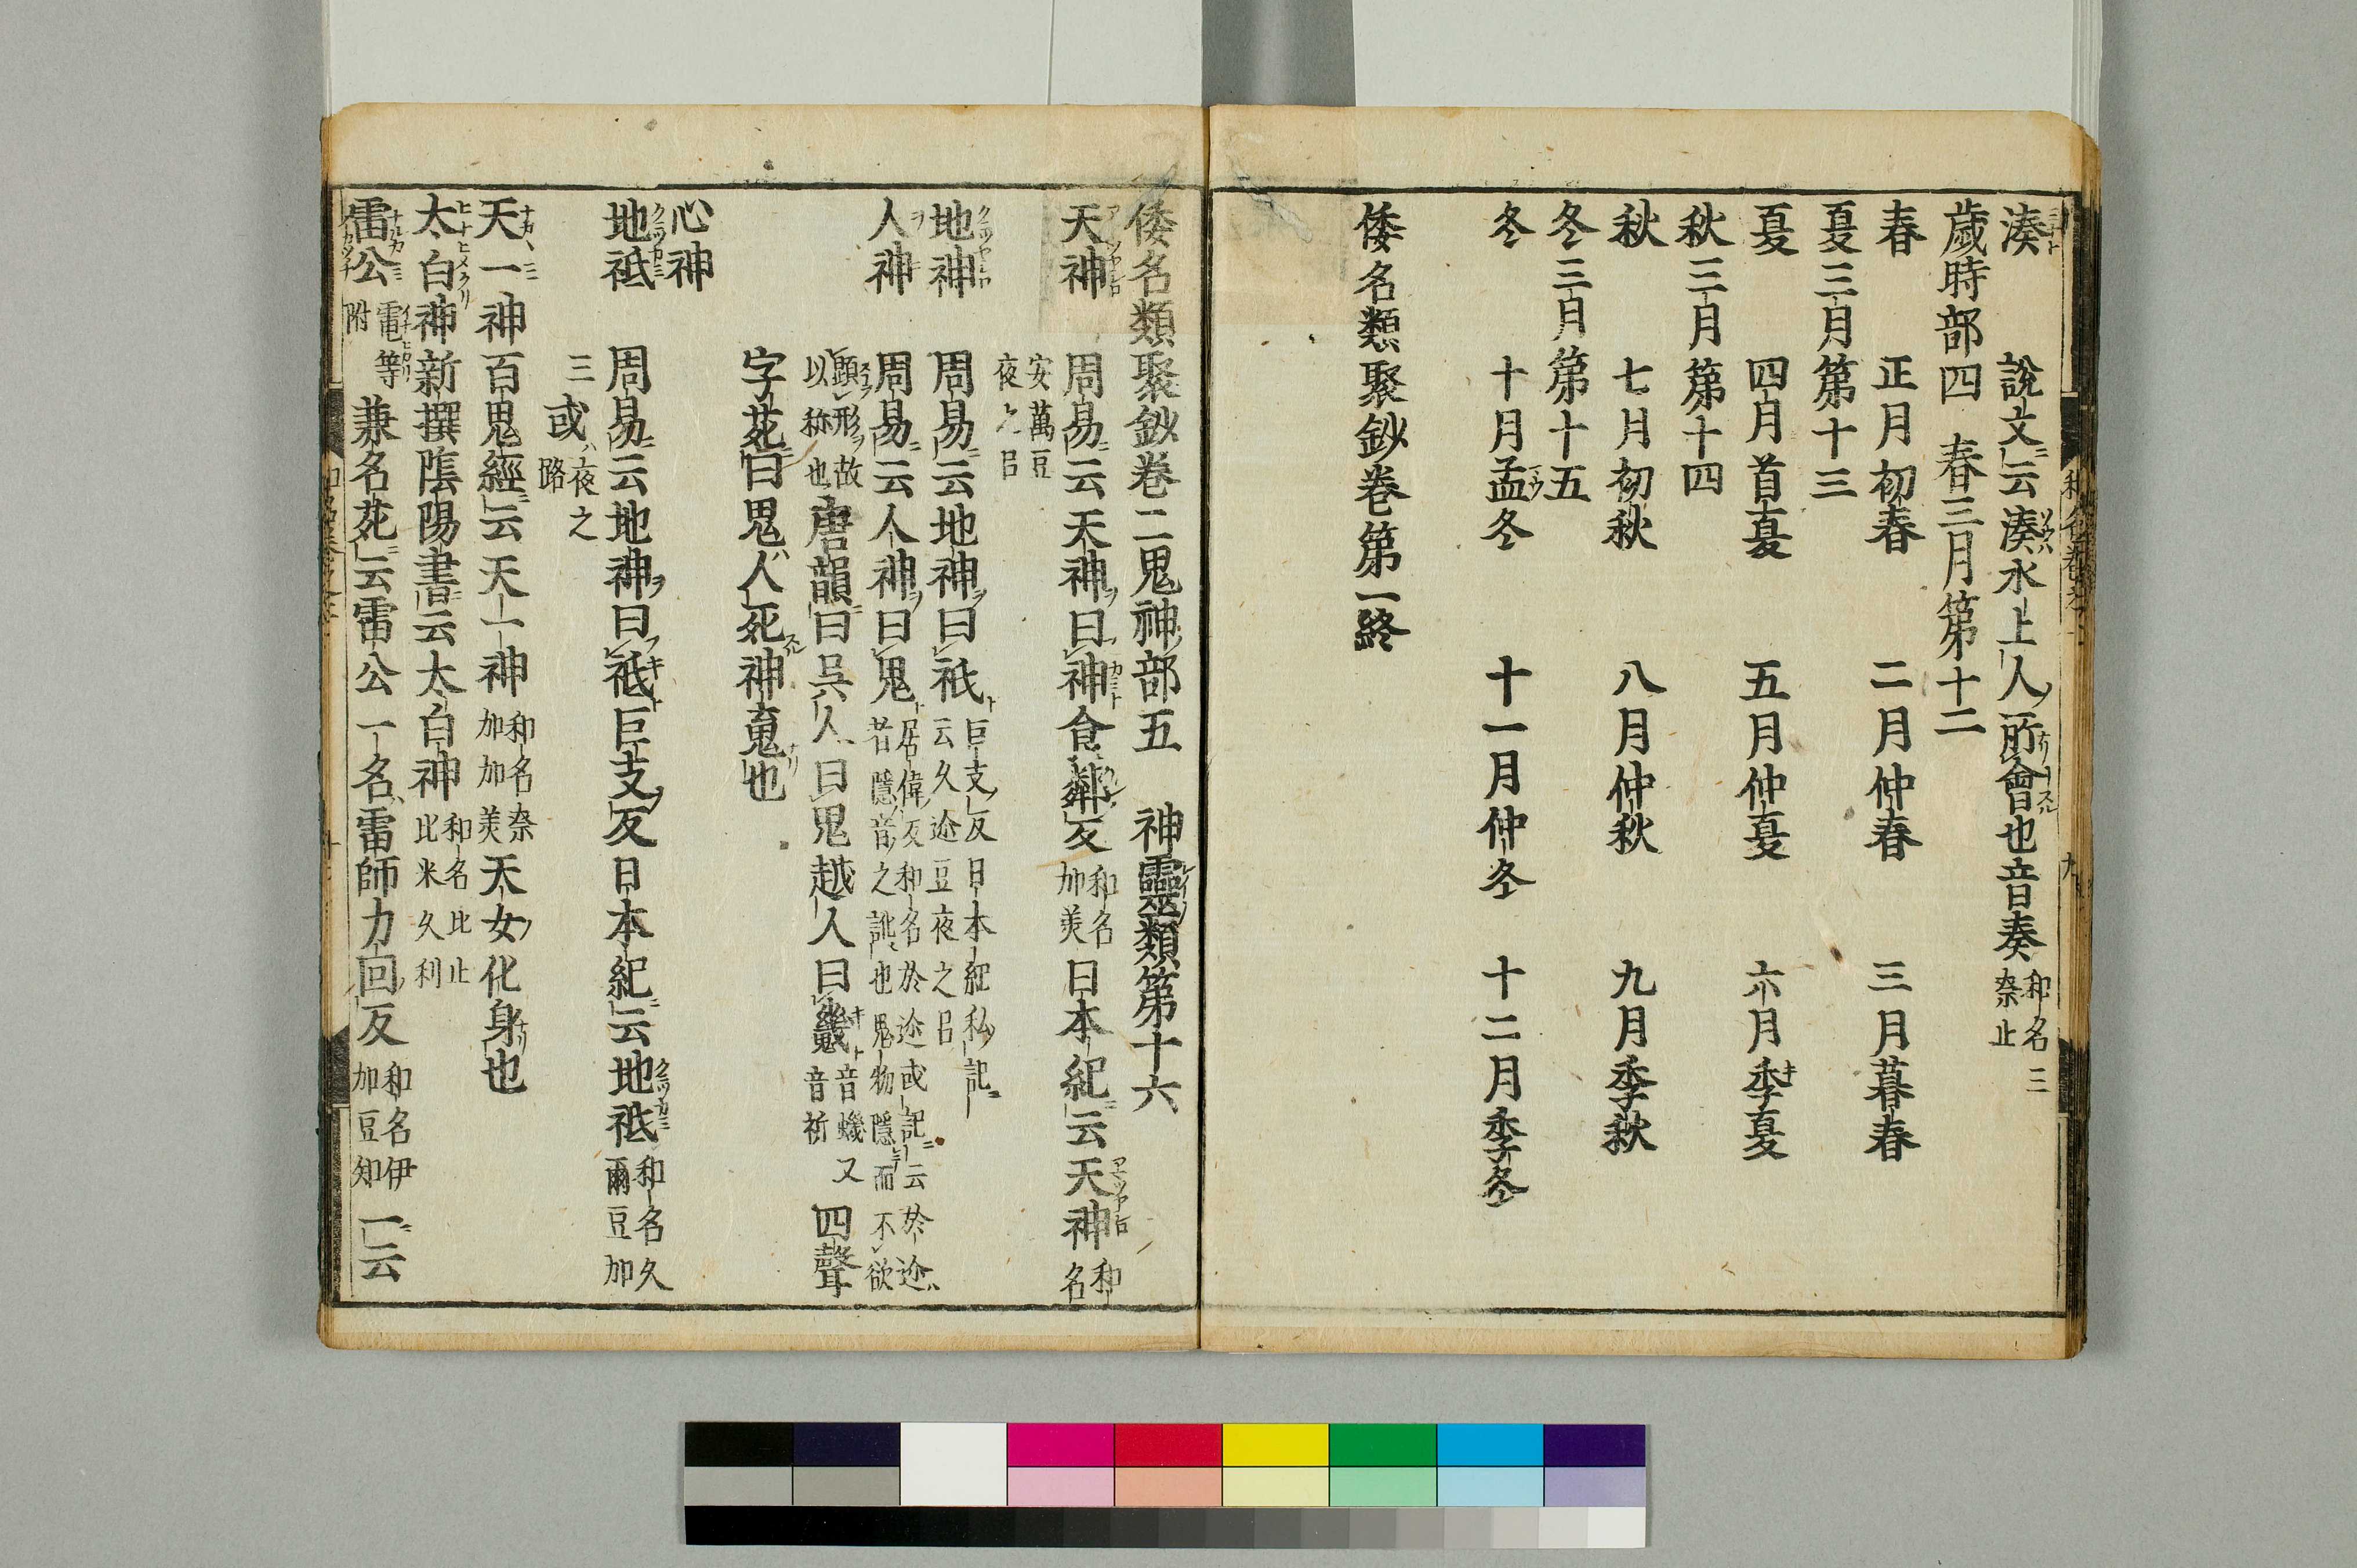 湊 說文云湊水上人所會也音奏 和名三奈止
歲時部四 春三月第十二
春 正月初春 二月仲春 三月暮春
夏三月第十三
夏 四月首夏 五月仲夏 六月季夏
秋三月第十四
秋 七月初秋 八月仲秋 九月季秋
冬三月第十五
冬 十月孟冬 十一月仲冬 十二月季冬
倭名類聚鈔卷第一終
倭名類聚鈔卷二鬼神部五 神靈類第十六
天神 周易云天神曰神食鄰反 和名加美 日本紀云天神 和名
安萬豆夜之呂
地神 周易云地神曰祇 巨支反日本紀私記云久迩豆夜之呂
人神 周易云人神曰鬼 居偉反和名於迩或記云於迩者隱音之訛也鬼物隱而不欲
顕形故以称也 唐韻曰呉人曰鬼越人曰𩴆 音蟣又音祈 四聲
字苑曰鬼人死神䰟也
心神
地祇 周易云地神曰祇巨支反日本紀云地祇 和名久爾豆加
三 或夜之路
天一神 百鬼經云天一神 和名奈加加美 天女化身也
太白神 新撰陰陽書云太白神 和名比止比米久利
雷公 電等附 兼名苑云雷公一名雷師力回反 和名伊加豆知 一云